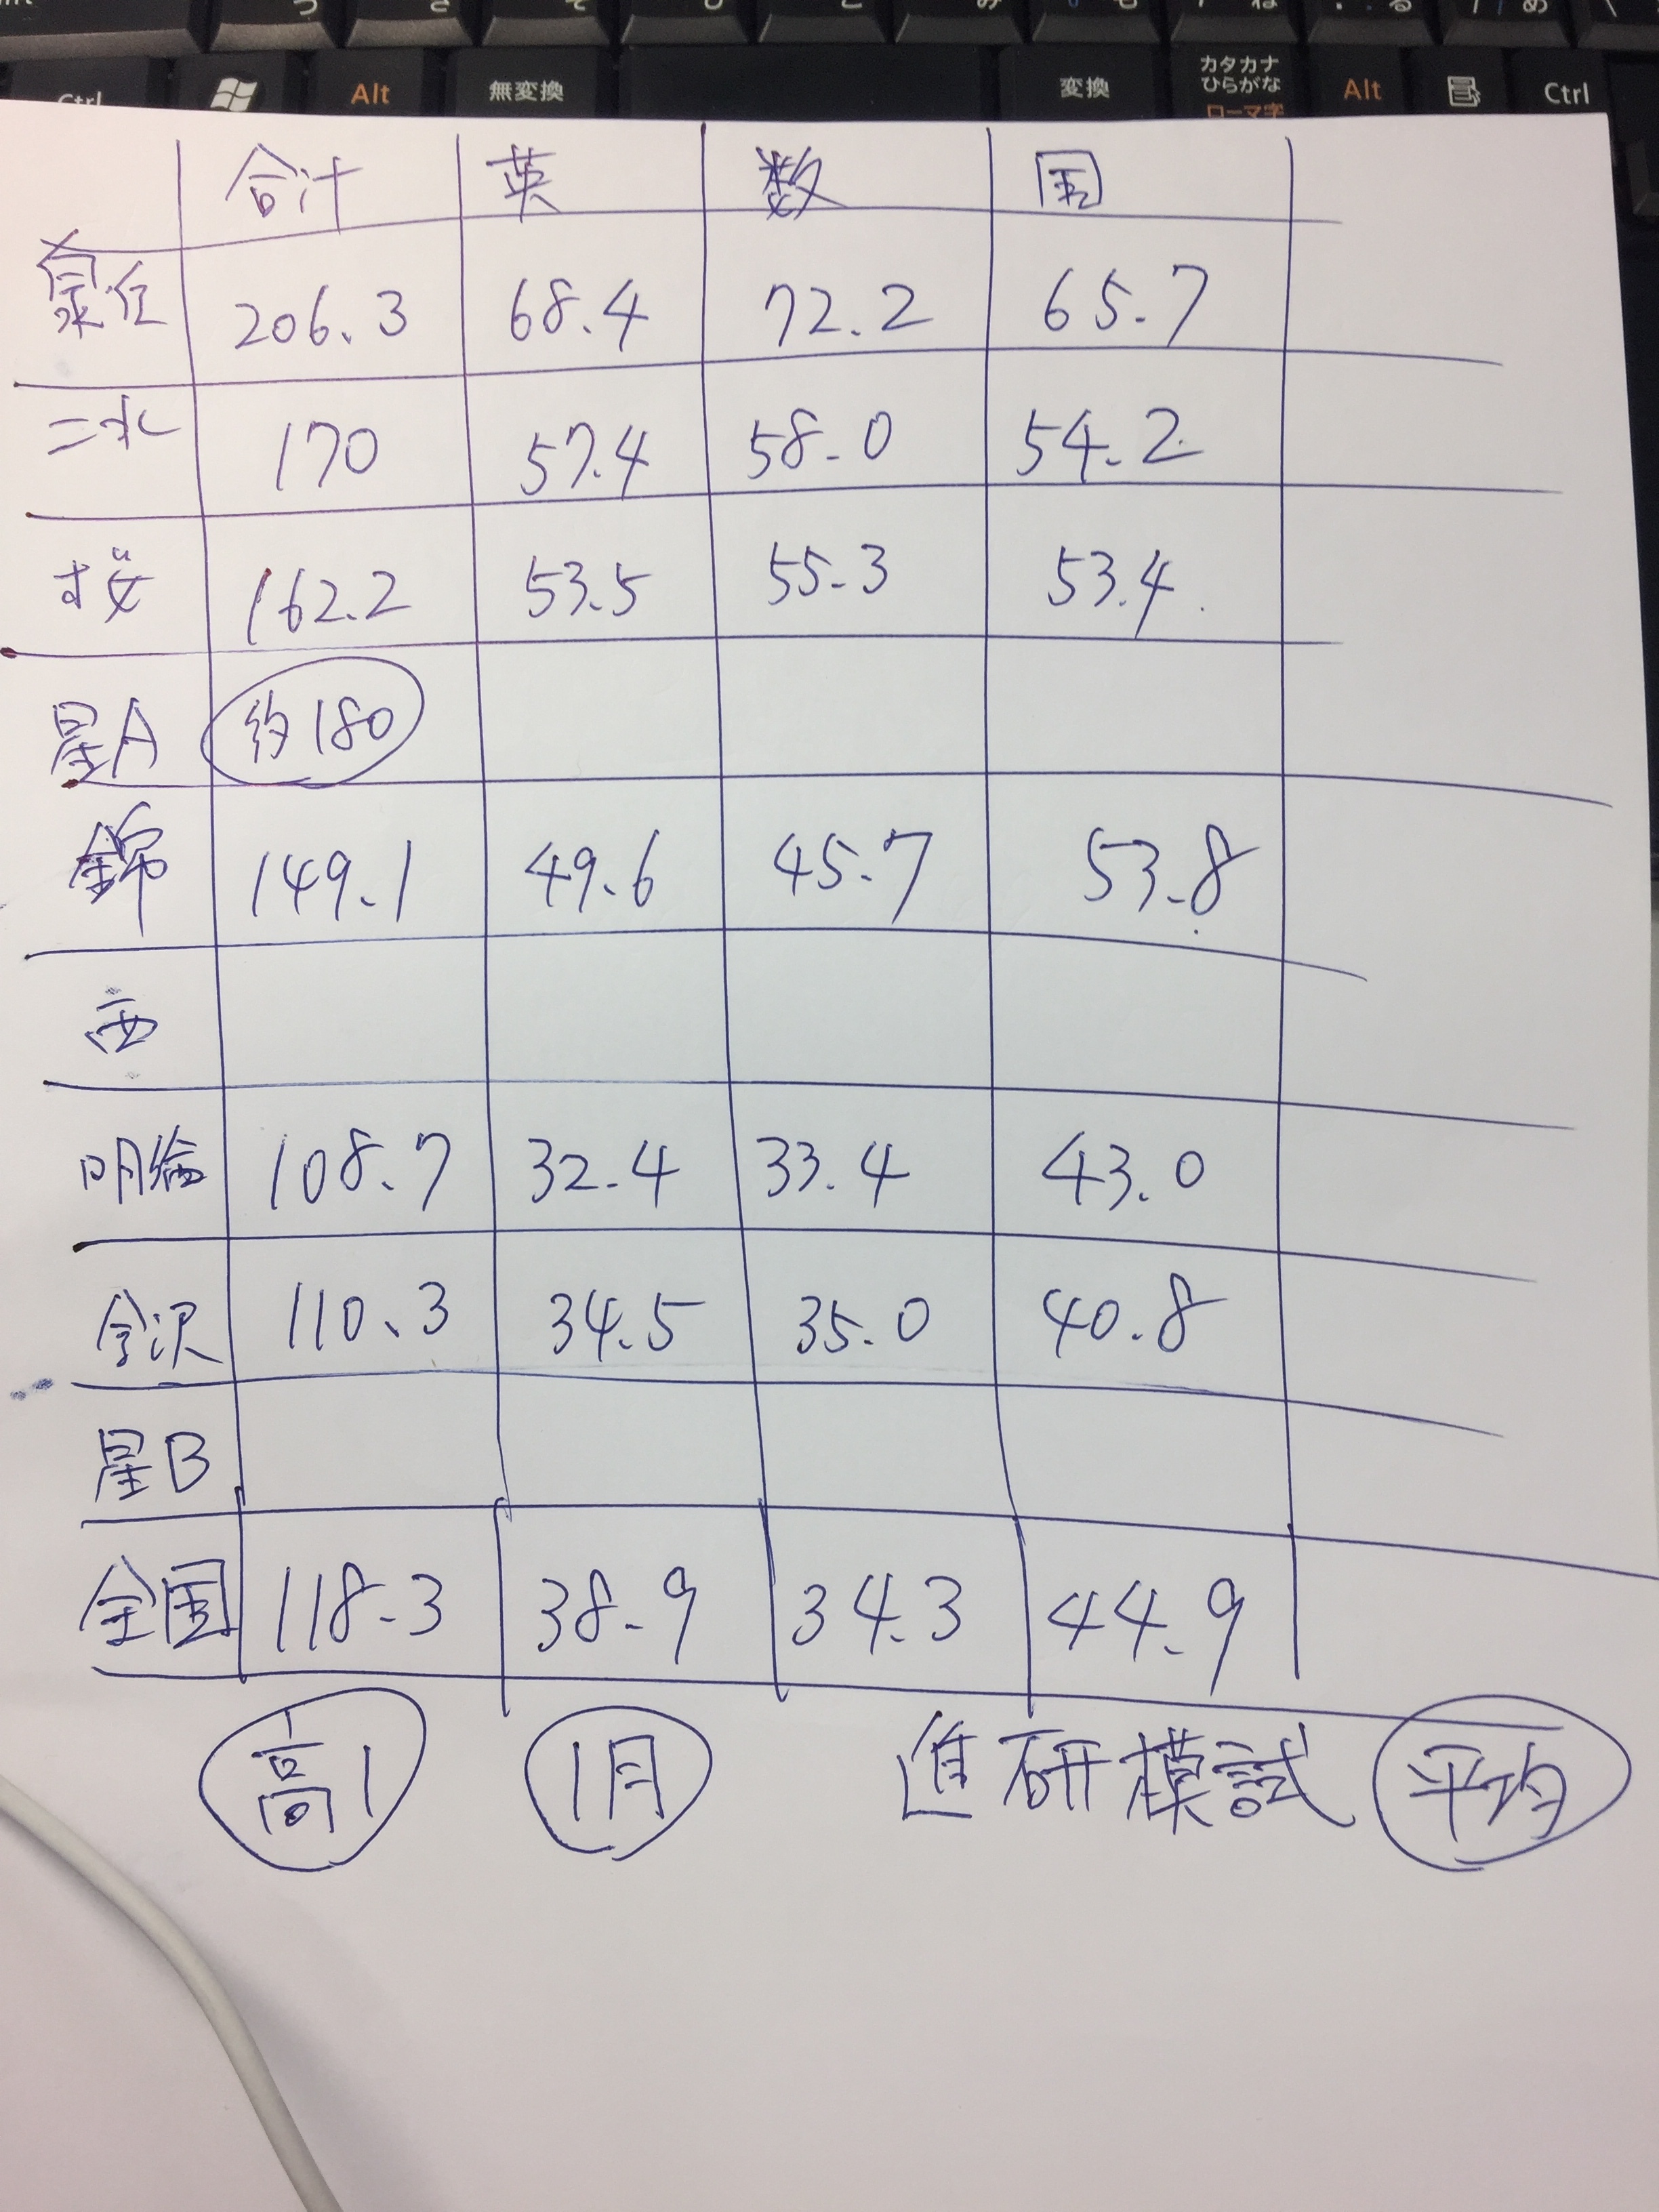 つ さ そ ひ こ み も ね る め
Ctrl Alt 無変換 変換 カタカナ ひらがな ローマ字 Alt Ctrl
合計 英 数 国
泉丘 206.3 68.4 72.2 65.7
二水 170 57.4 58.0 54.2
桜 162.2 53.5 55.3 53.4
星A 約180
錦 149.1 49.6 45.7 53.8
西
明倫 108.7 32.4 33.4 43.0
金沢 110.3 34.5 35.0 40.8
星B
全国 118.3 38.9 34.3 44.9
高1 1月 進研模試 平均